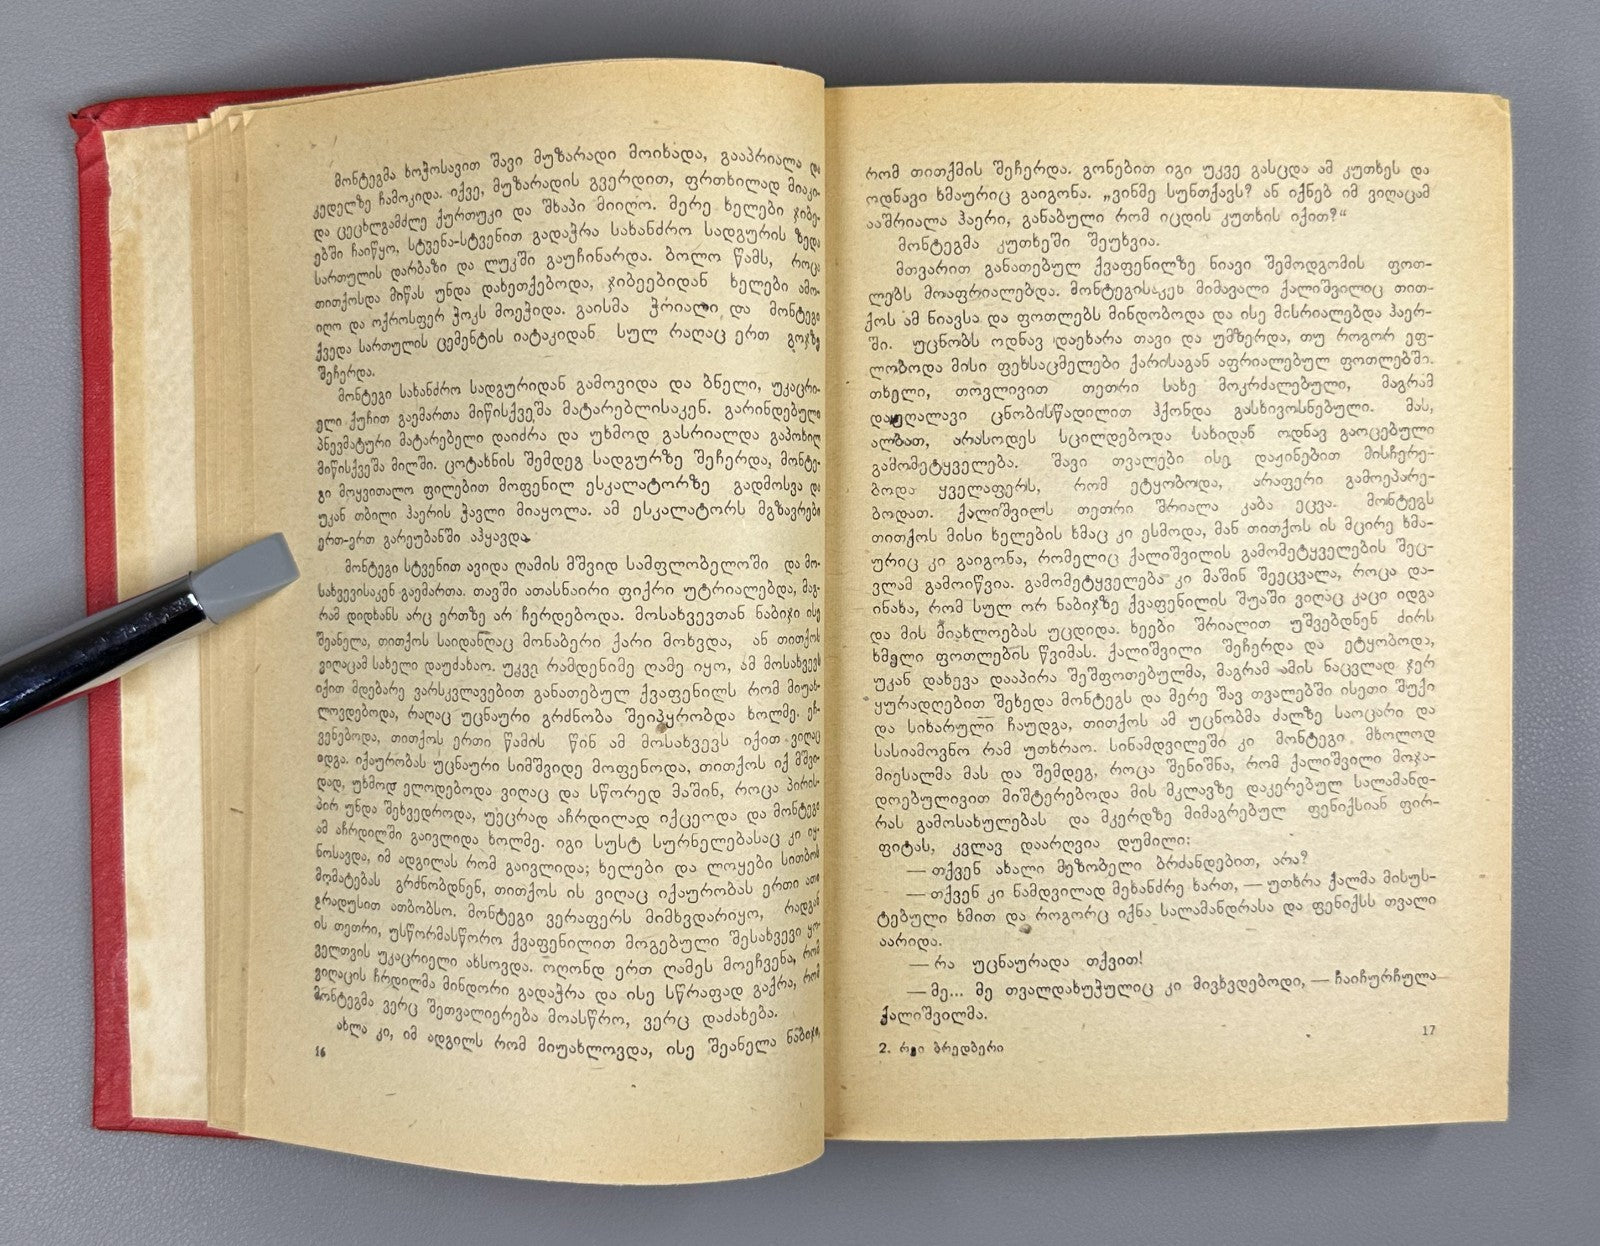 მონტეგმა ხოჭოსავით შავი მუზარადი მოიხადა, გააპრიალა და
კედელზე ჩამოკიდა. იქვე, მუზარადის გვერდით, ფრთხილად მიაკი-
და ცეცხლგამძლე ქურთუკი და შხაპი მიიღო. მერე ხელები ჯიბე-
ებში ჩაიწყო, სტვენა-სტვენით გადაჭრა სახანძრო სადგურის ზედა
სართულის დარბაზი და ლუკში გაუჩინარდა. ბოლო წამს, როცა
თითქოსდა მიწას უნდა დახეთქებოდა, ჯიბეებიდან ხელები ამო-
იღო და ოქროსფერ ჭოკს მოეჭიდა. გაისმა ჭრიალი და მონტეგი
ქვედა სართულის ცემენტის იატაკიდან სულ რაღაც ერთ გოჯზე
შეჩერდა.
მონტეგი სახანძრო სადგურიდან გამოვიდა და ბნელი, უკაცრი-
ელი ქუჩით გაემართა მიწისქვეშა მატარებლისაკენ. გარინდებული
პნევმატური მატარებელი დაიძრა და უხმოდ გასრიალდა გაპოხილ
მიწისქვეშა მილში. ცოტახნის შემდეგ სადგურზე შეჩერდა, მონტე-
გი მოყვითალო ფილებით მოფენილ ესკალატორზე გადმოსვა და
უკან თბილი ჰაერის ჭავლი მიაყოლა. ამ ესკალატორს მგზავრები
ერთ-ერთ გარეუბანში აჰყავდა.
მონტეგი სტვენით ავიდა ღამის მშვიდ სამფლობელოში და მო-
სახვევისაკენ გაემართა. თავში ათასნაირი ფიქრი უტრიალებდა, მაგ-
რამ დიდხანს არც ერთზე არ ჩერდებოდა. მოსახვევთან ნაბიჯი ისე
შეანელა, თითქოს საიდანღაც მონაბერი ქარი მოხვდა, ან თითქოს
ვიღაცამ სახელი დაუძახაო. უკვე რამდენიმე ღამე იყო, ამ მოსახვევს
იქით მდებარე ვარსკვლავებით განათებულ ქვაფენილს რომ მიუახ-
ლოვდებოდა, რაღაც უცნაური გრძნობა შეიპყრობდა ხოლმე. ეჩ-
ვენებოდა, თითქოს ერთი წამის წინ ამ მოსახვევს იქით ვიღაც
იდგა. იქაურობას უცნაური სიმშვიდე მოფენოდა, თითქოს იქ მშვი-
დად, უხმოდ ელოდებოდა ვიღაც და სწორედ მაშინ, როცა პირის-
პირ უნდა შეხვედროდა, უეცრად აჩრდილად იქცეოდა და მონტეგი
ამ აჩრდილში გაივლიდა ხოლმე. იგი სუსტ სურნელებასაც კი იყ-
ნოსავდა, იმ ადგილას რომ გაივლიდა; ხელები და ლოყები სითბოს
მომატებას გრძნობდნენ, თითქოს ის ვიღაც იქაურობას ერთი ათი
გრადუსით ათბობსო. მონტეგი ვერაფერს მიმხვდარიყო, რადგან
ის თეთრი, უსწორმასწორო ქვაფენილით მოგებული შესახვევი ყო-
ველთვის უკაცრიელი ახსოვდა. ოღონდ ერთ ღამეს მოეჩვენა, რომ
ვიღაცის ჩრდილმა მინდორი გადაჭრა და ისე სწრაფად გაქრა, რომ
მონტეგმა ვერც შეთვალიერება მოასწრო, ვერც დაძახება.
ახლა კი, იმ ადგილს რომ მიუახლოვდა, ისე შეანელა ნაბიჯი,
16
რომ თითქმის შეჩერდა. გონებით იგი უკვე გასცდა ამ კუთხეს და
ოდნავი ხმაურიც გაიგონა. „ვინმე სუნთქავს? ან იქნებ იმ ვიღაცამ
ააშრიალა ჰაერი, განაბული რომ იცდის კუთხის იქით?“
მონტეგმა კუთხეში შეუხვია.
მთვარით განათებულ ქვაფენილზე ნიავი შემოდგომის ფოთ-
ლებს მოაფრიალებდა. მონტეგისაკენ მიმავალი ქალიშვილიც თით-
ქოს ამ ნიავსა და ფოთლებს მინდობოდა და ისე მისრიალებდა ჰაერ-
ში. უცნობს ოდნავ დაეხარა თავი და უმზერდა, თუ როგორ ეფ-
ლობოდა მისი ფეხსაცმელები ქარისაგან აფრიალებულ ფოთლებში.
თხელი, თოვლივით თეთრი სახე მოკრძალებული, მაგრამ
დაუღალავი ცნობისწადილით ჰქონდა გასხივოსნებული. მას,
ალბათ, არასოდეს სცილდებოდა სახიდან ოდნავ გაოცებული
გამომეტყველება. შავი თვალები ისე დაჟინებით მისჩერე-
ბოდა ყველაფერს, რომ ეტყობოდა, არაფერი გამოეპარე-
ბოდათ. ქალიშვილს თეთრი შრიალა კაბა ეცვა. მონტეგს
თითქოს მისი ხელების ხმაც კი ესმოდა, მან თითქოს ის მცირე ხმა-
ურიც კი გაიგონა, რომელიც ქალიშვილის გამომეტყველების შეც-
ვლამ გამოიწვია. გამომეტყველება კი მაშინ შეეცვალა, როცა და-
ინახა, რომ სულ ორ ნაბიჯზე ქვაფენილის შუაში ვიღაც კაცი იდგა
და მის მიახლოებას უცდიდა. ხეები შრიალით უშვებდნენ ძირს
ხმელი ფოთლების წვიმას. ქალიშვილი შეჩერდა და ეტყობოდა,
უკან დახევა დააპირა შეშფოთებულმა, მაგრამ ამის ნაცვლად ჯერ
ყურადღებით შეხედა მონტეგს და მერე შავ თვალებში ისეთი შუქი
და სიხარული ჩაუდგა, თითქოს ამ უცნობმა ძალზე საოცარი და
სასიამოვნო რამ უთხრაო. სინამდვილეში კი მონტეგი მხოლოდ
მიესალმა მას და შემდეგ, როცა შენიშნა, რომ ქალიშვილი მოჯა-
დოებულივით მიშტერებოდა მის მკლავზე დაკერებულ სალამანდ-
რას გამოსახულებას და მკერდზე მიმაგრებულ ფენიქსიან ფირ-
ფიტას, კვლავ დაარღვია დუმილი:
— თქვენ ახალი მეზობელი ბრძანდებით, არა?
— თქვენ კი ნამდვილად მეხანძრე ხართ, — უთხრა ქალმა მისუს-
ტებული ხმით და როგორც იქნა სალამანდრასა და ფენიქსს თვალი
აარიდა.
— რა უცნაურადა თქვით!
— მე... მე თვალდახუჭულიც კი მივხვდებოდი, — ჩაიჩურჩულა
ქალიშვილმა.
2. რეი ბრედბერი
17